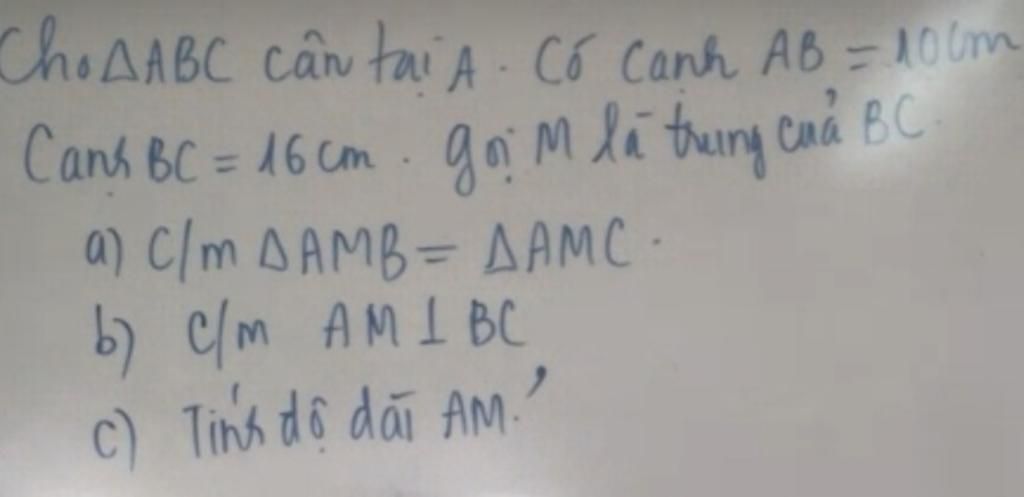 Cho ΔABC cân tại A. Có cạnh AB = 10cm
Cạnh BC = 16cm. gọi M là trung của BC.
a) C/m ΔAMB = ΔAMC.
b) C/m AM ⊥ BC
c) Tính độ dài AM.